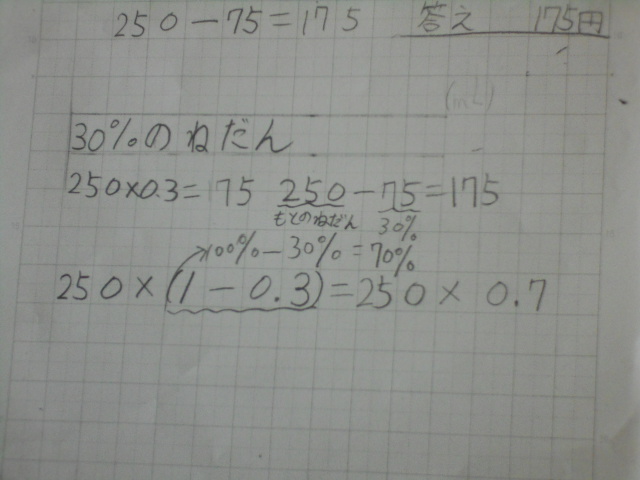 250-75=175 答え 175円
(mL)
30%のねだん
250×0.3=75 250-75=175
もとのねだん 30%
100%-30%=70%
250×(1-0.3)=250×0.7